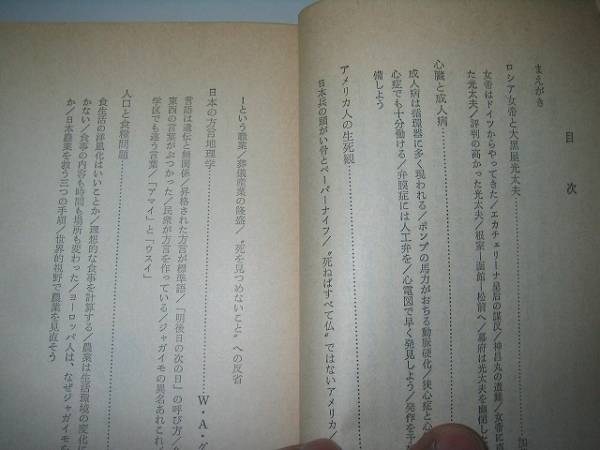 目次
まえがき
ロシア女帝と大黒屋光太夫
女帝はドイツからやってきた/エカチェリーナ皇后の謀反/神昌丸の遭難/女帝に直
た光太夫/評判の高かった光太夫/根室―函館―松前へ/幕府は光太夫を幽閉した
心臓と成人病
成人病は循環器に多く現われる/ポンプの馬力がおちる動脈硬化/狭心症と心
心症でも十分働ける/弁膜症には人工弁を/心電図で早く発見しよう/発作を予
備しよう
アメリカ人の生死観
日本兵の頭がい骨とペーパーナイフ/“死ねばすべて仏”ではないアメリカ/
ーという職業/葬儀産業の隆盛/“死を見つめないこと”への反省
日本の方言地理学
W・A・グ
言語は遺伝と無関係/昇格された方言が標準語/「明後日の次の日」の呼び方/
東西の言葉がぶつかった/民衆が方言を作っている/ジャガイモの異名あれこれ/
学区でも違う言葉/「アマイ」と「ウスイ」
人口と食糧問題
食生活の洋風化はいいことか/理想的な食事を計算する/農業は生活環境の変化に
かない/食事の内容も時間も場所も変わった/ヨーロッパ人は、なぜジャガイモを
か/日本農業を救う三つの手順/世界的視野で農業を見直そう